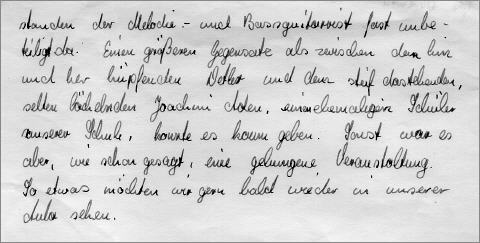 standen der Melodie- und Bassguitarrist fast unbe-
teiligt da. Einen größeren Gegensatz als zwischen dem hin
und her hüpfenden Detlef und dem steif dastehenden,
selten lächelnden Joachim Aden, ein ehemaliger Schüler
unserer Schule, konnte es kaum geben. Sonst war es
aber, wie schon gesagt, eine gelungene Veranstaltung.
So etwas möchten wir gern bald wieder in unserer
Aula sehen.